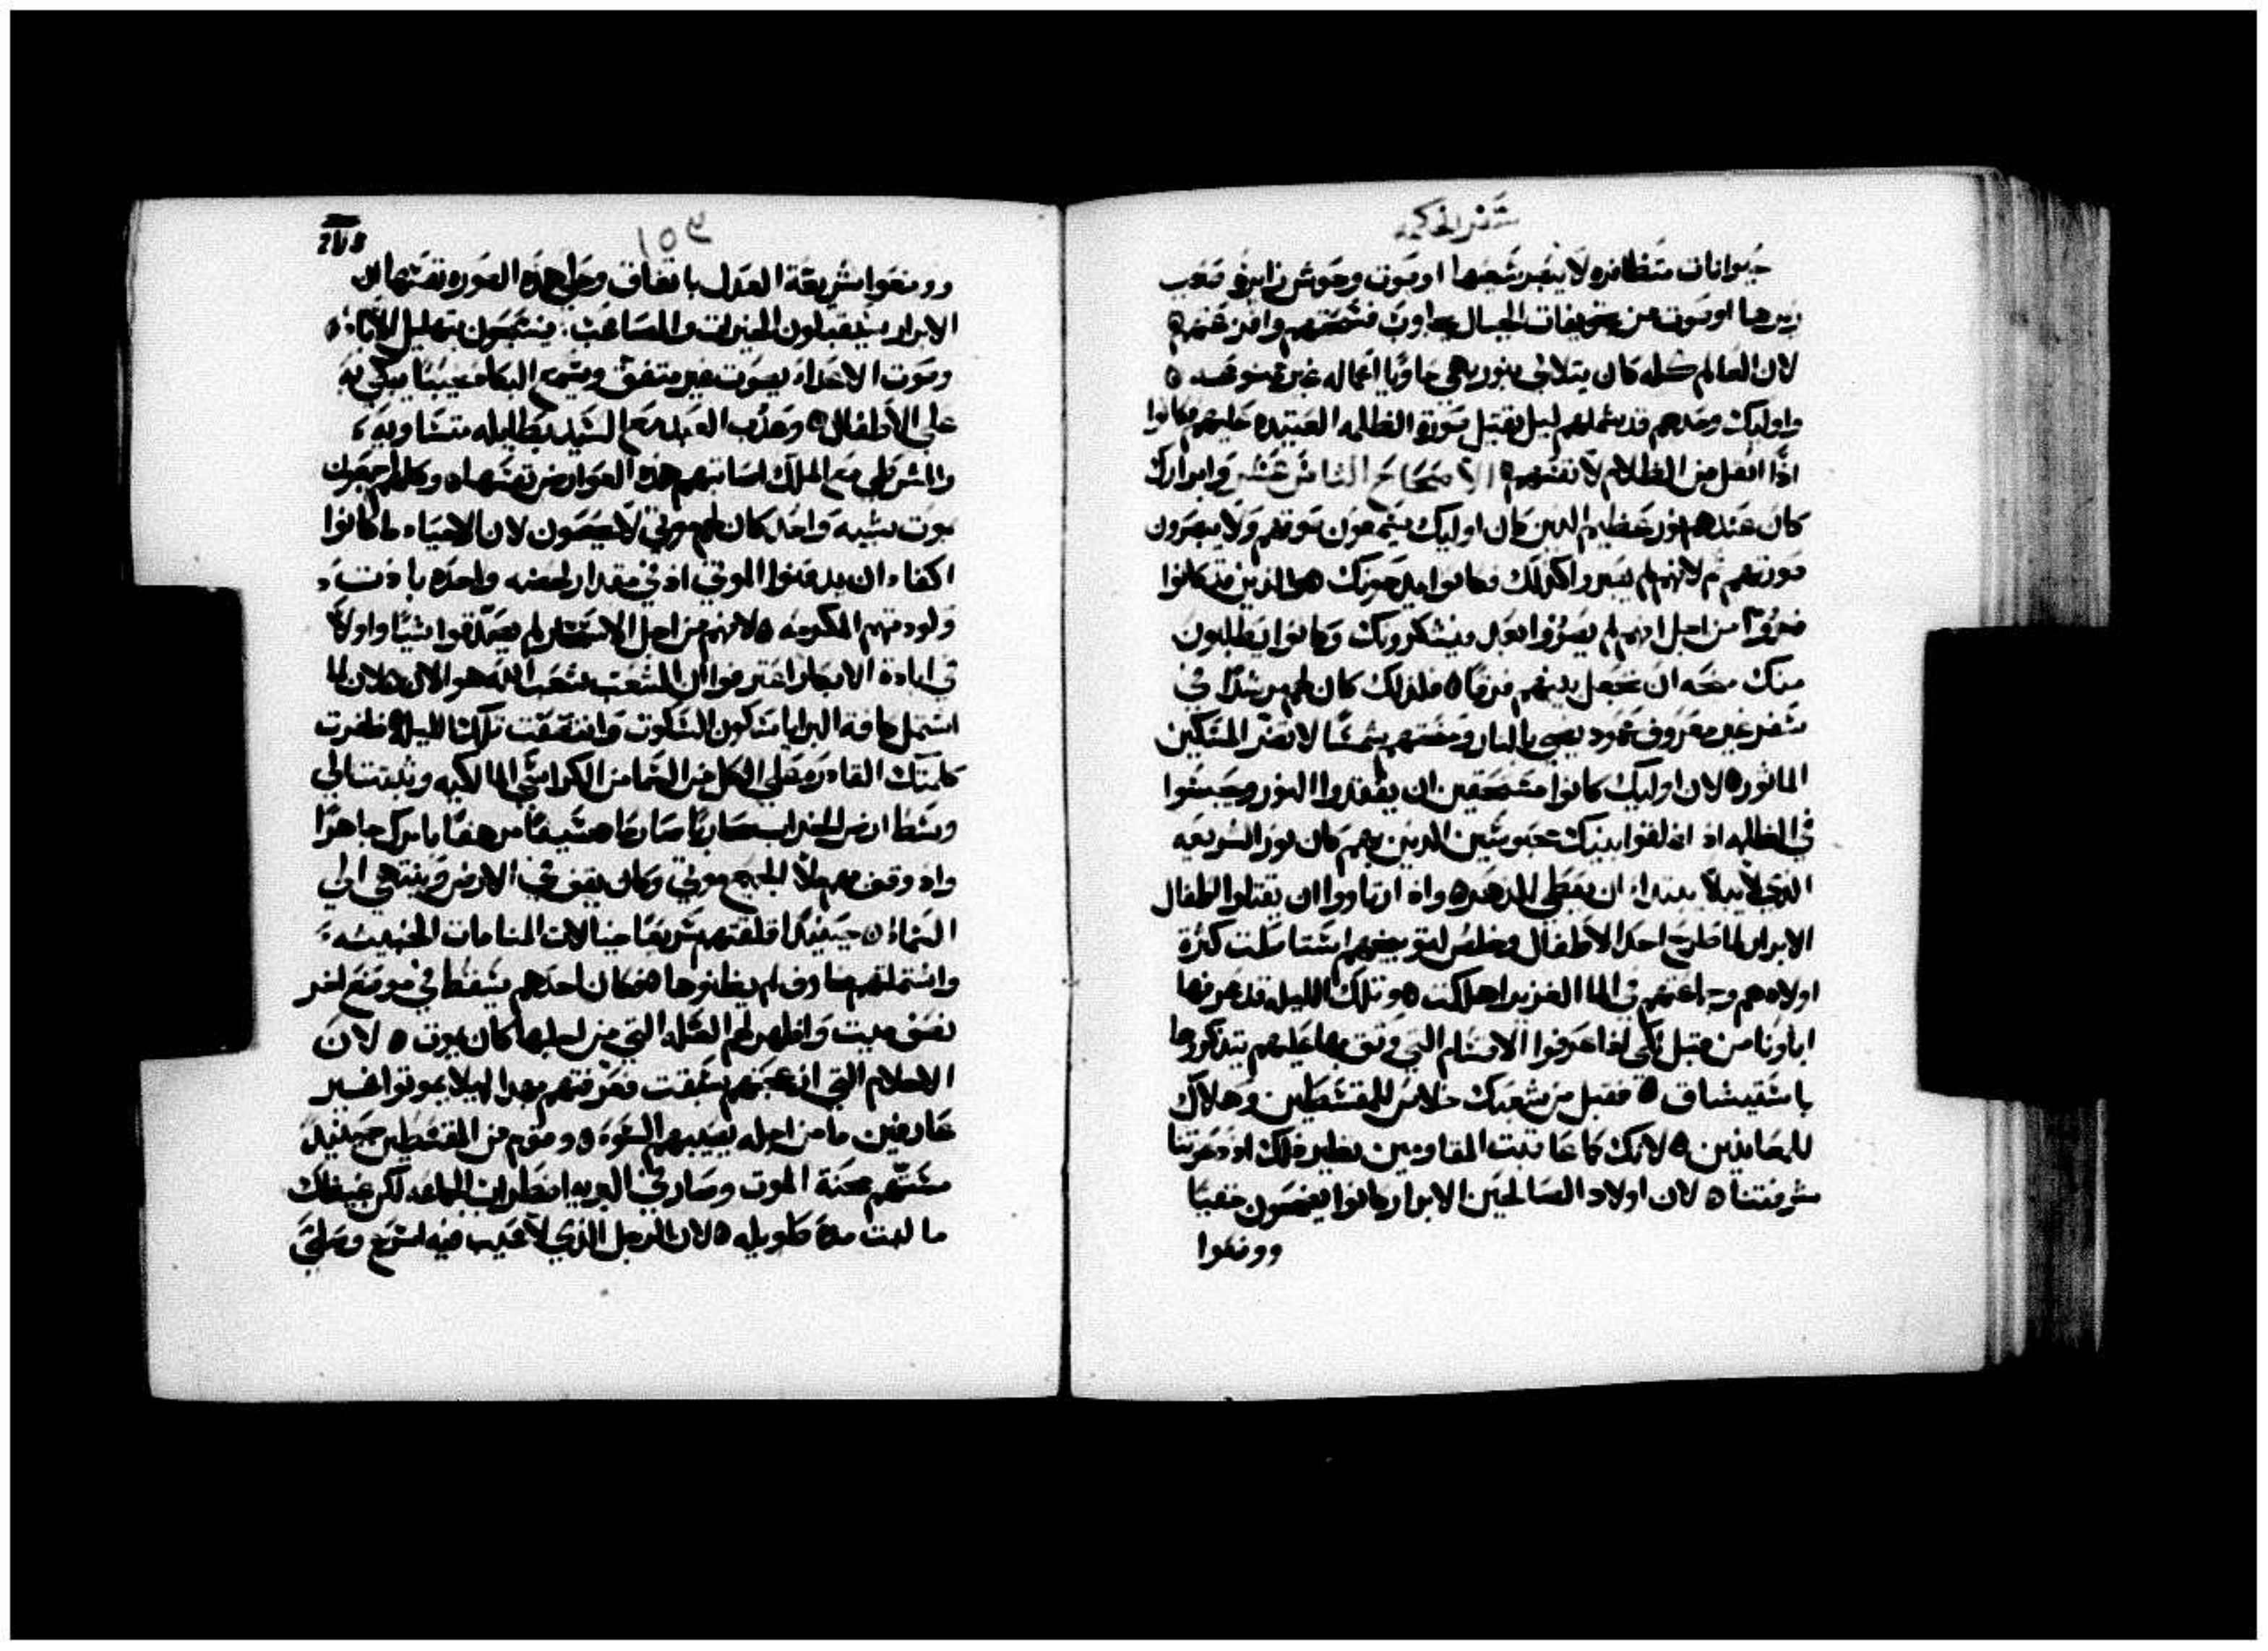 سفر الحكمه
حيوانات متظافره لا يبصر سعيها او صوت وحوش زايره صعب
زيرها او صوت من تجويفات الجبال يجاوب فتسمعهم وافزعتهم
لان العالم كله كان يتلالى بنور بهي حاويا اعماله غير
واوليك وحدهم قد شملهم ليل يقتبل صورة الظلمه العتيده عليهم وكانوا
اذا اثقل من الظلام لانفسهم الاصحاح الثامن عشر وابرارك
كان عندهم نور عظيم الدين كان اوليك يسمعون صوتهم ولا يبصرون
صورتهم ثم لانهم لم يسيروا كذلك فكانوا يمدحونك هم الذين قد كانوا
ضروا من اجل انهم لم يضروا بعدل ويشكرونك وكانوا يطلبون
منك منحه ان تجعل بينهم فرقا فلذلك كان لهم مرشدا في
سفر غير معروف عمود يضي بالنار ومنحتهم شمسا لا تضر المسكين
الماثور لان اوليك كانوا مستحقين ان يفقدوا النور ويحبسوا
في الظلمه اذ اغلقوا بنيك محبوسين الدين بهم كان نور الشريعه
الذي لا يبلا يبتدا ان يعطى للدهر واذ ارتاووا ان يقتلوا اطفال
الابرار لما طرح احد الاطفال وخلص لتوبيخهم استاصلت كثرة
اولادهم وجماعتهم في الما الغزير اهلكت وتلك الليله قد عرفها
اباونا من قبل لكي اذا عرفوا الاقسام التي وثق بها عليهم يتدكروها
باستيشاق فقبل من شعبك خلاص للمقسطين وهلاك
للمعاندين لانك كما عاقبت المقاومين نظير ذلك اذ دعوتنا
شرفتنا لان اولاد الصالحين الابرار كانوا يضحون خفيا
ووضعوا
١٥٤
ووضعوا شريعة العدل باتفاق وعلى هذه الصوره نفسها ان
الابرار سيقبلون الخيرات والمصاعب. فيسبحون بتهليل الاباء
وصوت الاعداء بصوت غير متفق ويسمع البكا منحيبا مبكي به
على الاطفال وعذب العبد مع السيد بطايله متساويه
والشرطي مع الملك اصابتهم هذه العوارض نفسها وكلهم اجمعون
بموت شبيه واحد كان لهم موتي لا يحصون لان الاحياء ما كانوا
اكفاء ان يدفنوا الموتى اذ في مقدار لحضه واحده بادت
ولودتهم المكرمه لانهم من اجل الاستسحار لم يصدقوا شيا واولا
في ابادة الابكار اعترفوا ان الشعب شعب الله هو الان لان لما
اشتمل كافة البرايا سكون السكوت وانتصفت تلك الليله ظفرت
كلمتك القادره على الكل من السما من الكراسي المالكيه وثبتت الى
وسط ارض الخراب محاربا صارما سيفا مرهفا بامرك جاهرا
واذ وقف مهم ملا الجميع موتى وكان يقف على الارض وينتهي الى
السماء حينيذ اقلقتهم سريعا خيالات المنامات الخبيثه
واشتملتهم مخاوف لم يظنوها فكان احدهم يسقط في موضع اخر
نصف ميت واظهر لهم العله التي من اجلها كان يموت لان
الاحلام التي ازعجتهم سبقت فعرفتهم بهدا ليلا يموتوا غير
عارفين ما من اجله يصيبهم السوء وقوم من المقسطين حينيذ
مستهم محنة الموت وصار في البريه اضطراب الجماعه لكن غيظك
ما لبث مدة طويله لان الرجل الذي لا عيب فيه اسرع وصلى